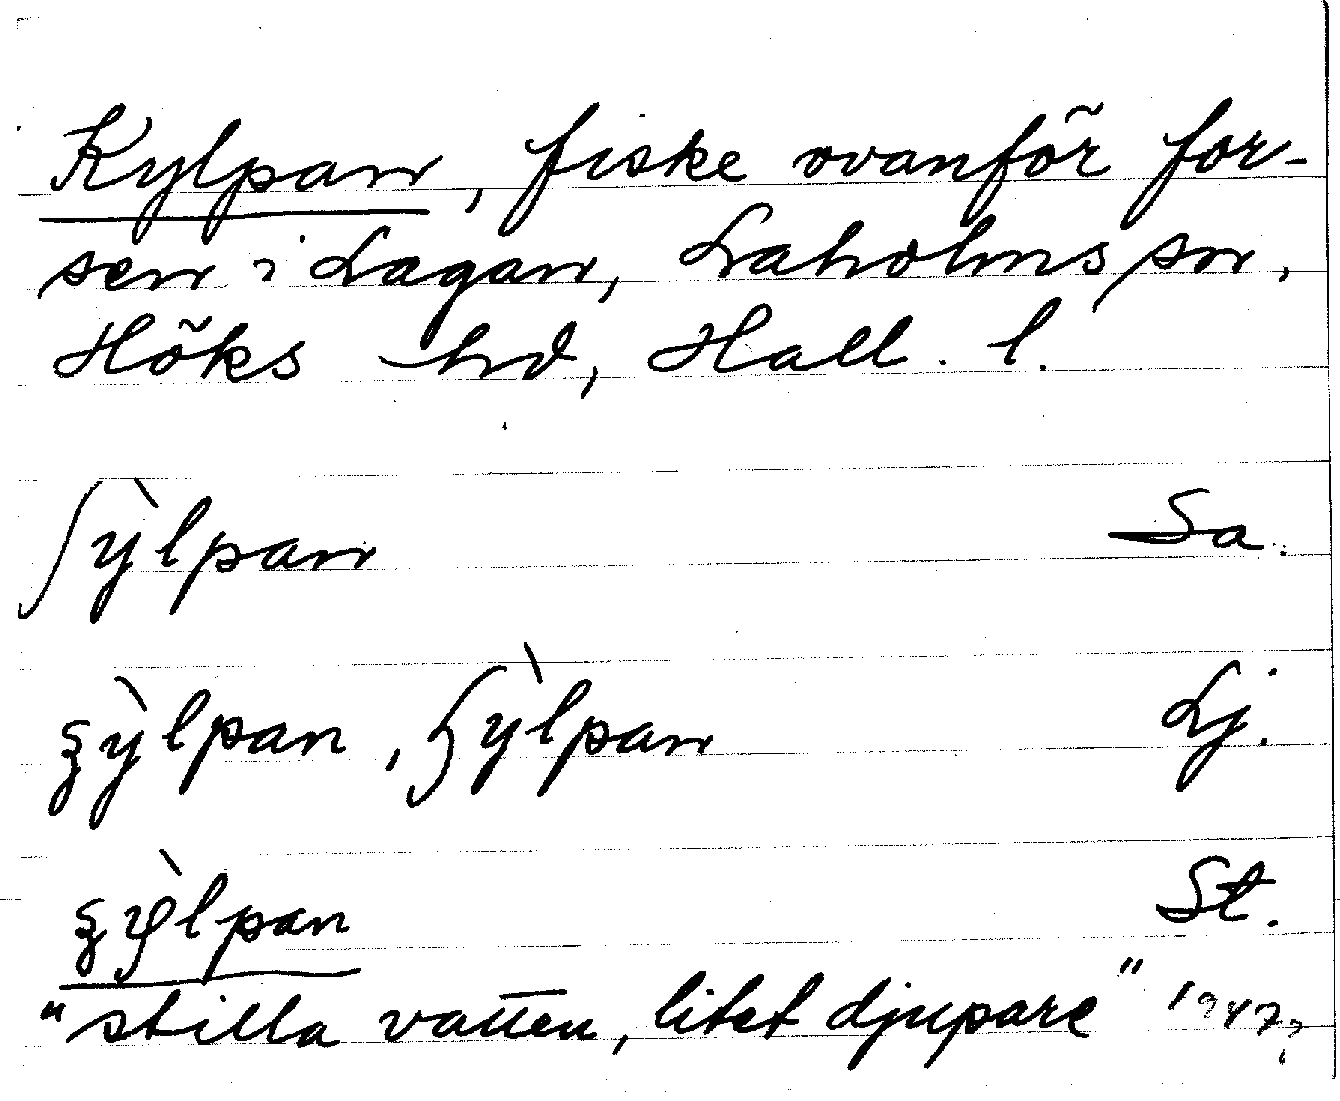 Kylpan, fiske ovanför for-
sen i Lagan, Laholms sn,
Höks hd, Hall. l.
ʃỳlpan Sa.
ȿỳlpan, ʃỳlpan Lj.
St.
"stilla vatten, litet djupare" 1947